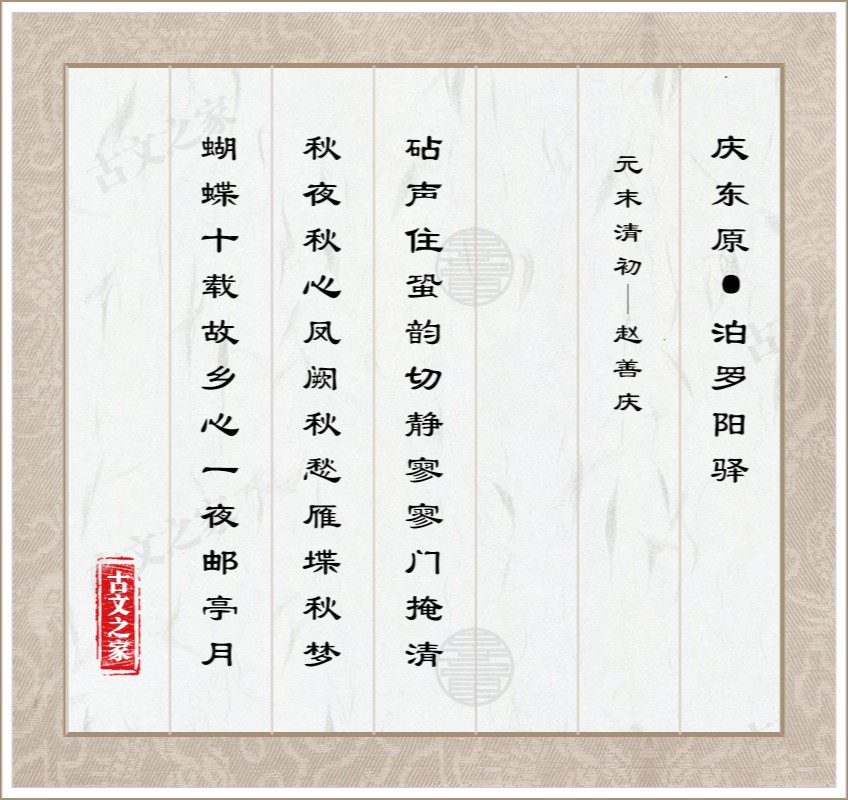 庆东原●泊罗阳驿
元末清初—赵善庆
砧声住蛩韵切静寥寥门掩清
秋夜秋心凤阙秋愁雁堞秋梦
蝴蝶十载故乡心一夜邮亭月
古文之家
古文之家
古文之家